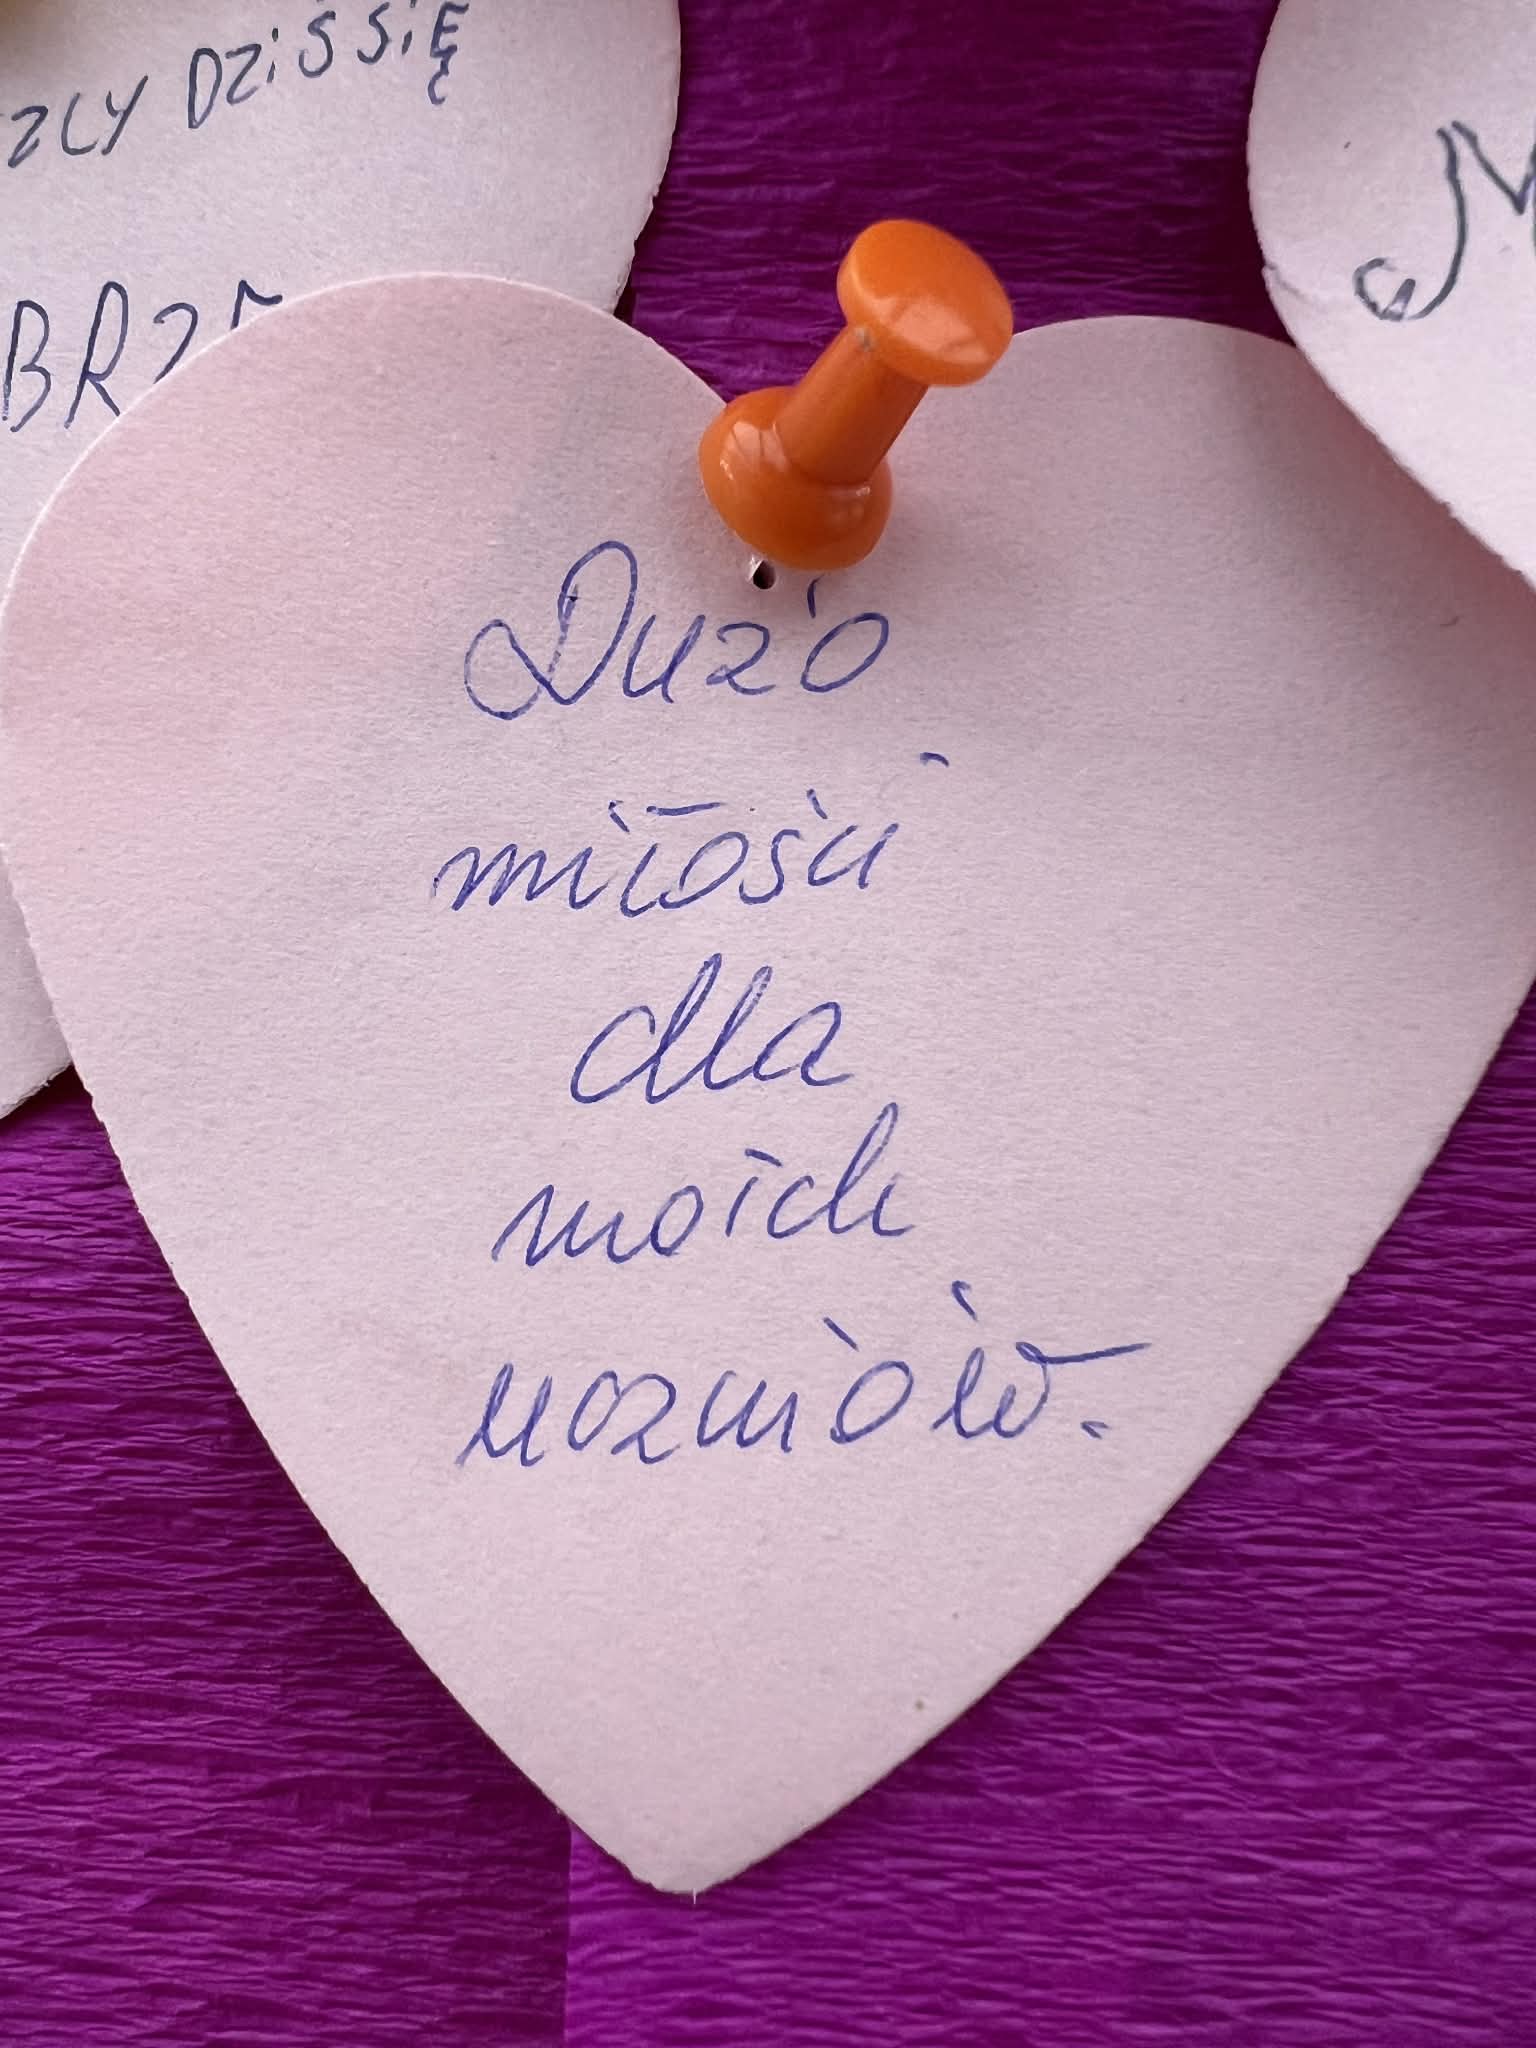 ZLY DZIŚ SIĘ
Dużo
miłości
dla
moich
uczniów.